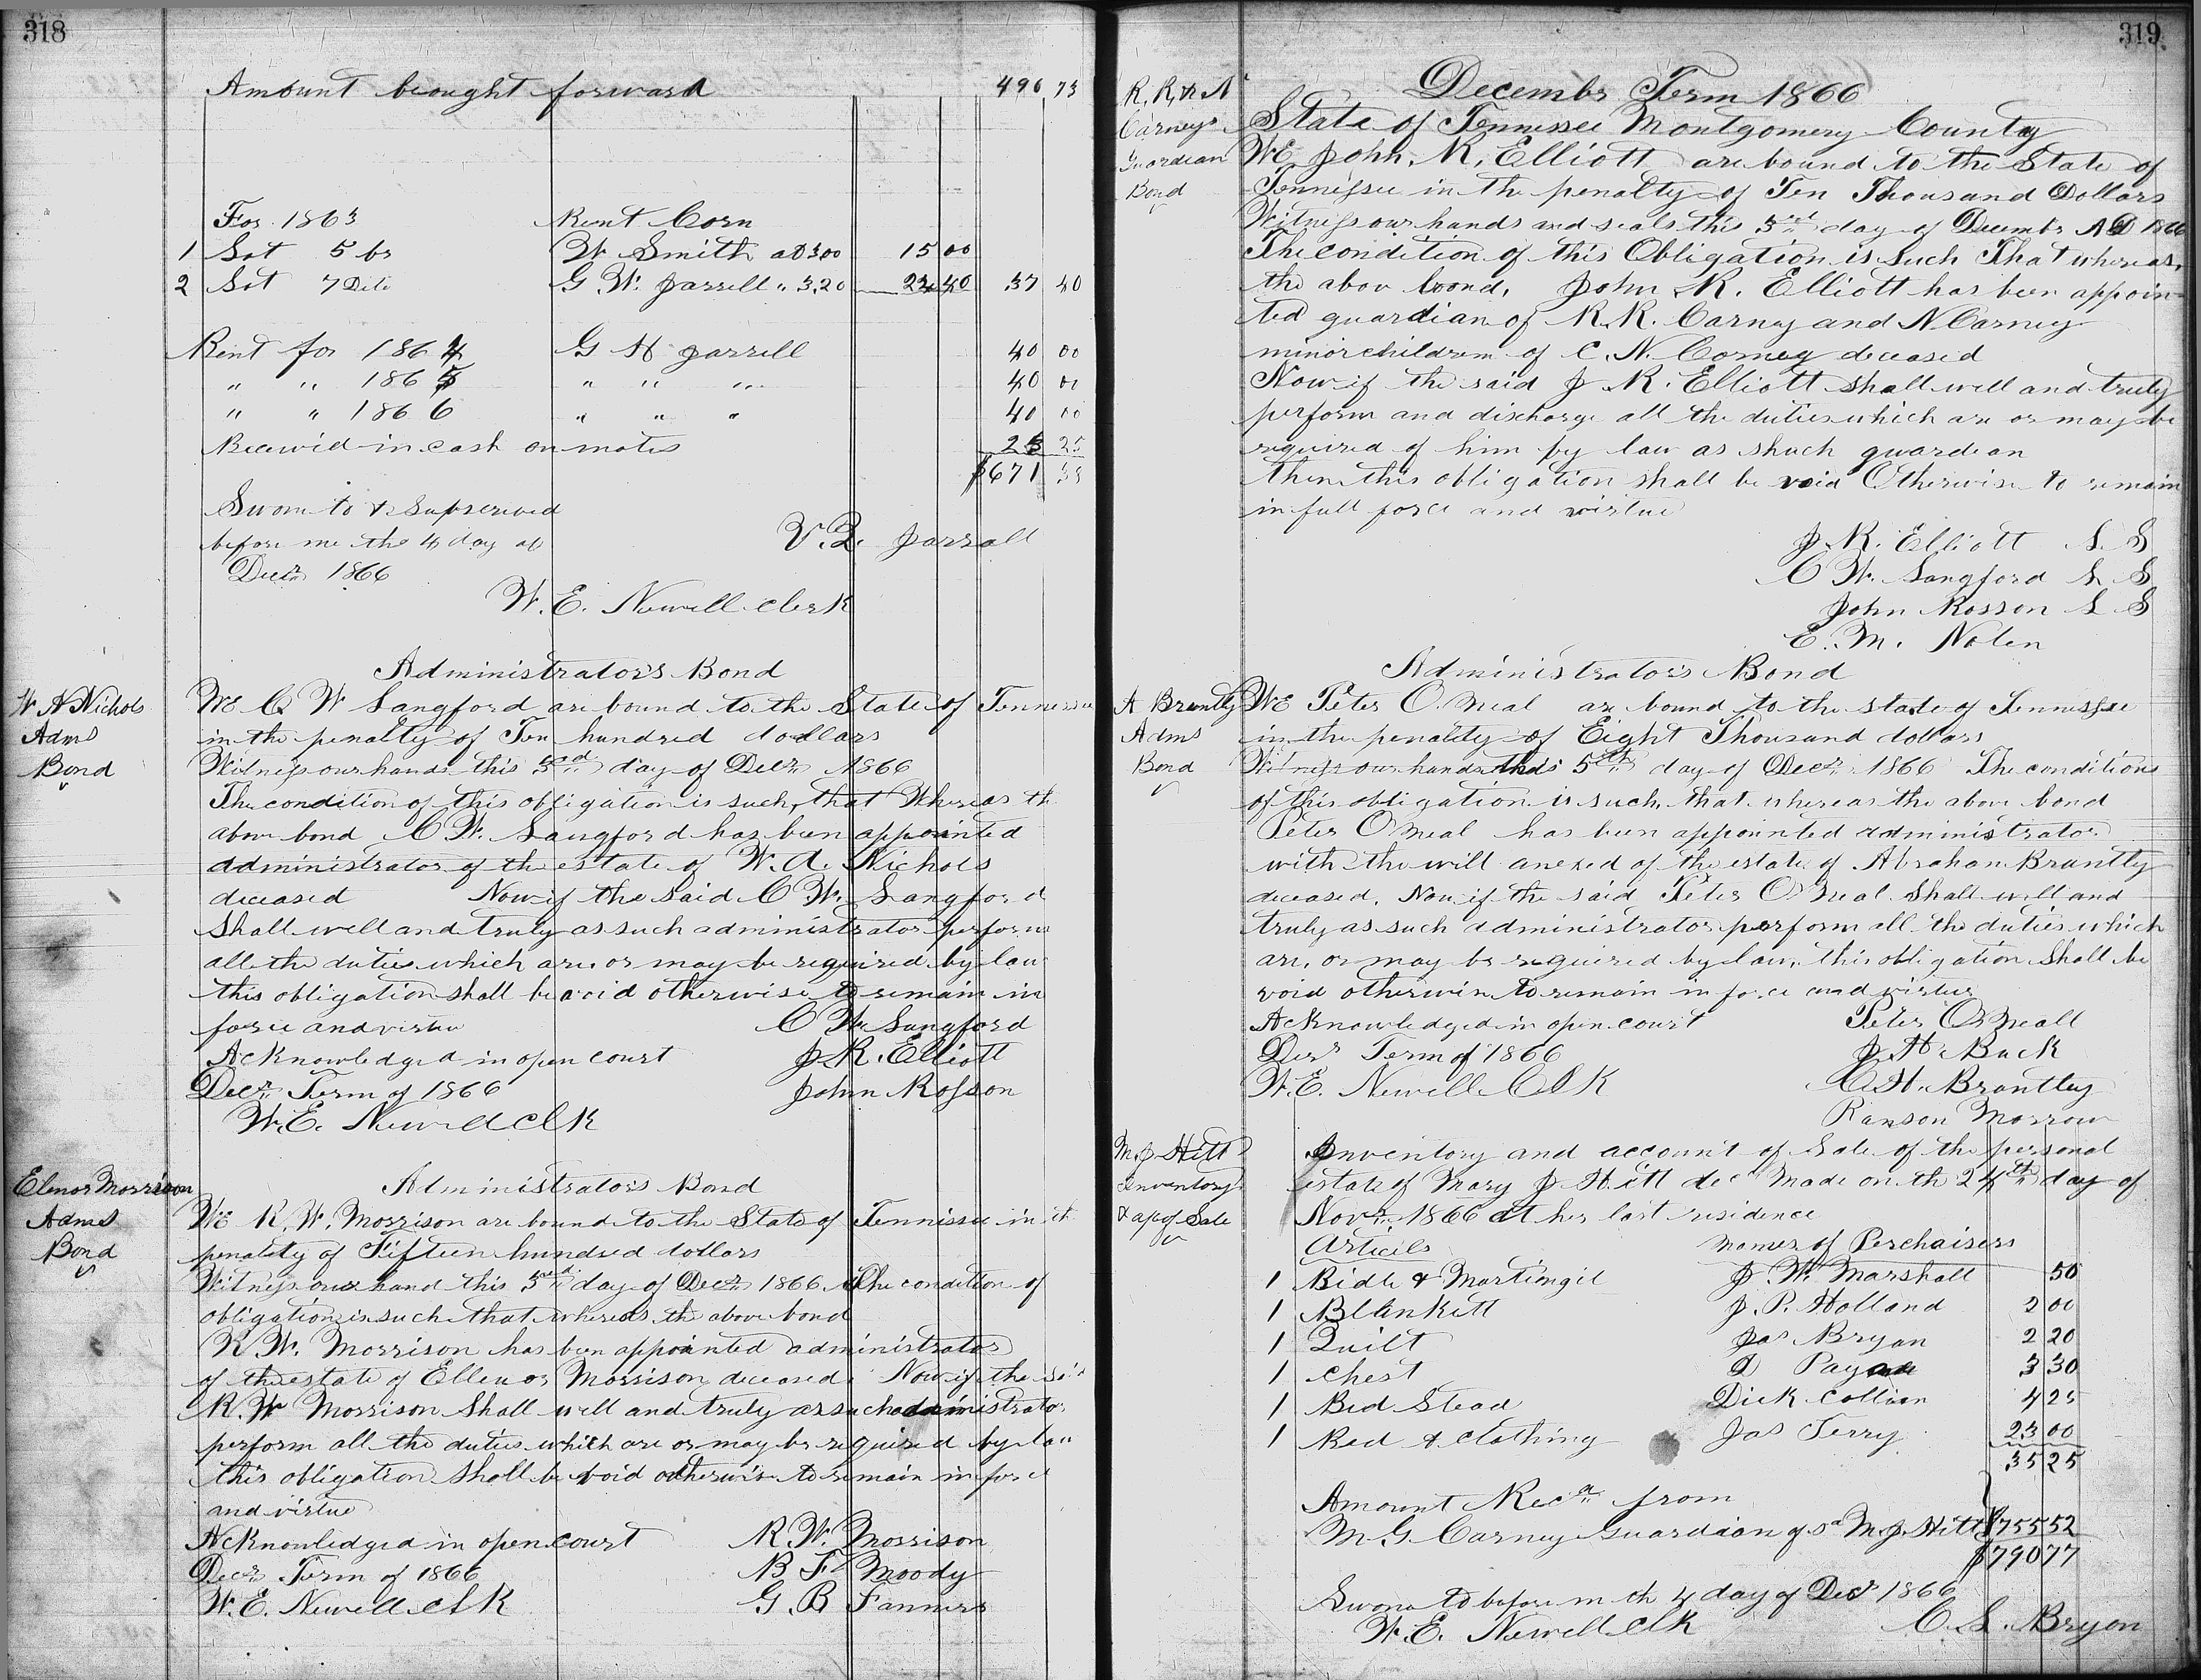 318
Amount brought forward 496 73
For 1863 Rent Corn
1 Lot 5 br W Smith at 3.00 15 00
2 Lot 7 Ditto G. W. Jarrell " 3.20 22 40 37 40
Rent for 1864 G H Jarrell 40 00
" " 1865 " " " 40 00
" " 1866 " " " 40 00
Receiv'd in cash on notes 25
$671
Sworn to & Supscrived
before me the 4 day of V. Q. Jarrall
Decr 1866
W. E. Newell clerk
Administrators Bond
W N Nichols
Adms
Bond
We C W Sangford are bound to the State of Tennessee
in the penalty of Ten hundred dollars
Witness our hands this 3rd day of Decr 1866
The condition of this obligation is such, that Whereas th
above bond C W. Sangford has been appointed
administrator of the estate of W. A. Nichols
deceased Now if the said C W. Sangford
shall well and truly as such administrator perform
all the duties which are or may be required by law
this obligation shall be void otherwise to remain in
force and virtue C W Sangford
Acknowledged in open court J. R. Elliott
Decr Term of 1866 John Rosson
W. E. Newell Clk
Elenor Morrison
Adms
Bond
Administrators Bond
We R. W. Morrison are bound to the State of Tennissee in th
penality of Fifteen hundred dollars
Witness our hand this 3rd day of Decr 1866 The condition of
obligation is such that whereas th above bond
R. W. Morrison has been appointed administrator
of the estate of Ellenor Morrison deceased Now if the said
R. W Morrison shall well and truly as such administrator
perform all the duties which are or may be required by law
this obligation shall be void otherwise to remain in force
and virtue
Acknowledged in open court R. W. Morrison
Decr Term of 1866 B F Moody
W. E. Newell Clk G. B Fanners
319
R. R, & N
Carneys
Guardian
Bond
Decembr Term 1866
State of Tennessee Montgomery County
We John. R. Elliott are bound to the State of
Tennessee in the penalty of Ten Thousand Dollars
Witness our hands and seals this 3rd day of Decembr AD 1866
The condition of this Obligation is Such That whereas,
the abov bond, John R. Elliott has been appoin-
ted guardian of R. R. Carney and N Carney
minor children of C. N. Carney deceased
Now if the said J R. Elliott shall well and truly
perform and discharge all the duties which are or may be
required of him by law as shuch guardean
then this obligation shall be void Otherwise to remain
in full force and virtue
J. R. Elliott L. S
C W. Sangford L S
John Rosson L S
E. M. Nolen
Administrators Bond
A Brantly
Adms
Bond
We Peter O. Neal are bound to the state of Tennessee
in the penality of Eight Thousand dollars
Witness our hands this 5th day of Decr 1866 The conditions
of this obligation is such, that whereas the above bond
Peter O Neal has been appointed administrator
with the will anexed of the estate of Abraham Brantly
deceased. Now if the said Peter O Neal Shall well and
truly as such administrator perform all the duties which
are, or may be required by law, this obligation Shall be
void otherwise to remain in force and virtue
Acknowledged in open court Peter O Neall
Decr Term of 1866 J. H. Buck
W. E. Newell Clk C. H. Brantley
Ranson Morrow
M. J Hitt
Inventory
& ac of Sale
Inventory and account of Sale of the personal
estate of Mary J Hitt dec Made on th 24th day of
Novr 1866 at her last residence
Articils names of Perchaisers
1 Bidle & Martingil J. W. Marshall 50
1 Blankett J. P. Holland 2 00
1 Quilt Jas Bryan 2 20
1 Chest D Payne 3 30
1 Bed Stead Dick Collien 4 25
1 Bed & Clothing Jas Terry 23 00
35 25
Amount Recd from
M. G. Carney Guardian of sd M. J. Hitt $755 52
$790 77
Sworn to before m th 4 day of Decr 1866
W. E. Newell Clk C. L. Bryan